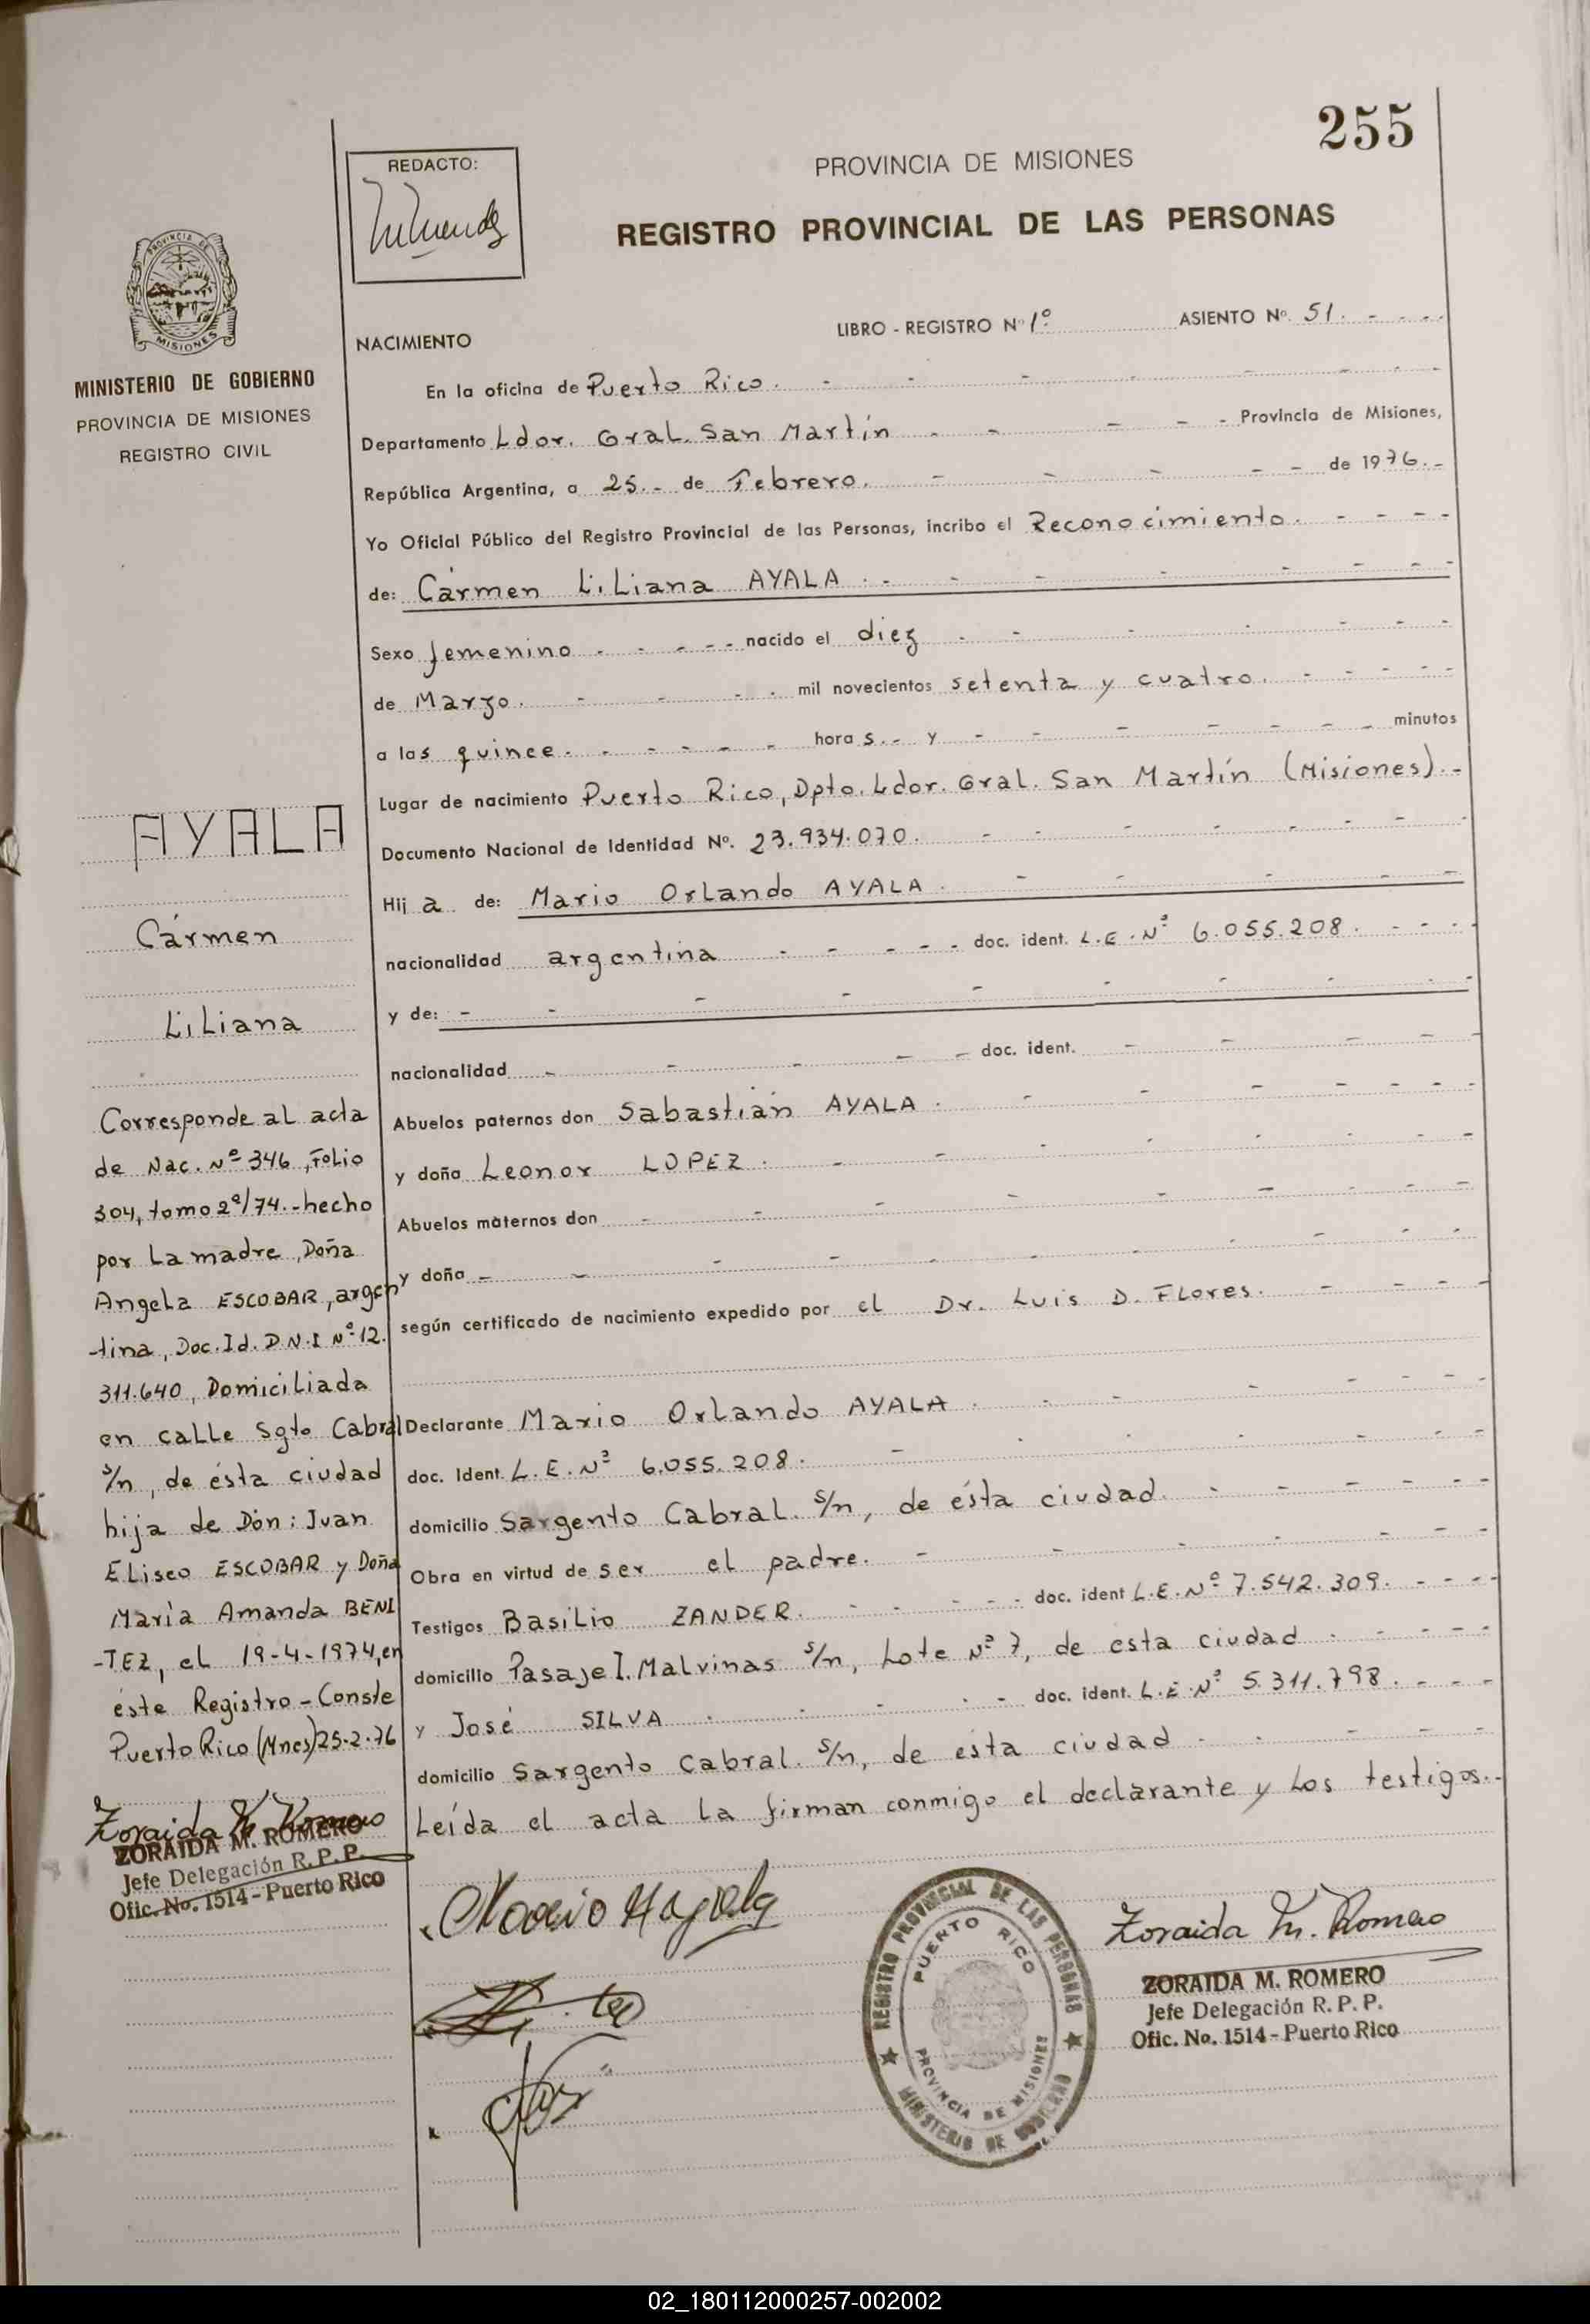 255
REDACTO:
PROVINCIA DE MISIONES
REGISTRO PROVINCIAL DE LAS PERSONAS
PROVINCIA DE
MISIONES
MINISTERIO DE GOBIERNO
PROVINCIA DE MISIONES
REGISTRO CIVIL
NACIMIENTO
LIBRO - REGISTRO Nº 1º ASIENTO Nº. 51. - - - -
En la oficina de Puerto Rico. - - - - - - - -
Departamento Ldor. Gral. San Martín - - - - - Provincia de Misiones,
República Argentina, a 25.- de Febrero. - - - - - de 1976.-
Yo Oficial Público del Registro Provincial de las Personas, incribo el Reconocimiento. - - - -
de: Cármen Liliana AYALA. - - - - - - - -
Sexo femenino - - - - - nacido el diez - - - - - - -
de Marzo. - - - mil novecientos setenta y cuatro. - - - - -
a las quince. - - - - - hora s.- y - - - - - - - minutos
Lugar de nacimiento Puerto Rico, Dpto. Ldor. Gral. San Martín (Misiones).-
Documento Nacional de Identidad Nº. 23.934.070. - - - - - - -
Hij a de: Mario Orlando AYALA. - - - - -
nacionalidad argentina - - - - - doc. ident. L.E.Nº 6.055.208. - - - -
y de: - - - - - - - - - -
nacionalidad - - - - - doc. ident. - - - -
Abuelos paternos don Sabastián AYALA. - - - - - - -
y doña Leonor LOPEZ. - - - - - - - -
Abuelos maternos don - - - - - - - - -
y doña - - - - - - - - - -
según certificado de nacimiento expedido por el Dr. Luis D. Flores. - - - -
Declarante Mario Orlando AYALA. - - - - - -
doc. Ident. L.E.Nº 6.055.208. - - - - - -
domicilio Sargento Cabral. s/n, de ésta ciudad. - - - - -
Obra en virtud de ser el padre. - - - - - -
Testigos Basilio ZANDER. - - - - doc. ident L.E.Nº 7.542.309. - - - -
domicilio Pasaje I. Malvinas s/n, Lote Nº 7, de esta ciudad - - - - -
y José SILVA - - - - doc. ident. L.E.Nº 5.311.798. - - -
domicilio Sargento Cabral. s/n, de ésta ciudad - - - - -
Leída el acta la firman conmigo el declarante y los testigos.-
AYALA
Cármen
Liliana
Corresponde al acta
de Nac. Nº 346, Folio
304, tomo 2º/74.-hecho
por la madre, Doña
Angela ESCOBAR, argen
-tina, Doc.Id. D.N.I Nº 12.
311.640, Domiciliada
en calle Sgto Cabral
s/n, de ésta ciudad
hija de Dón: Juan
Eliseo ESCOBAR y Doña
María Amanda BENI
-TEZ, el 19-4-1974, en
éste Registro - Conste
Puerto Rico (Mnes) 25-2-76
Zoraida M. Romero
ZORAIDA M. ROMERO
Jefe Delegación R. P. P.
Ofic. No. 1514 - Puerto Rico
REGISTRO PROVINCIAL DE LAS PERSONAS
PUERTO RICO
PROVINCIA DE MISIONES
MINISTERIO DE GOBIERNO
Zoraida M. Romero
ZORAIDA M. ROMERO
Jefe Delegación R. P. P.
Ofic. No. 1514 - Puerto Rico
02_180112000257-002002